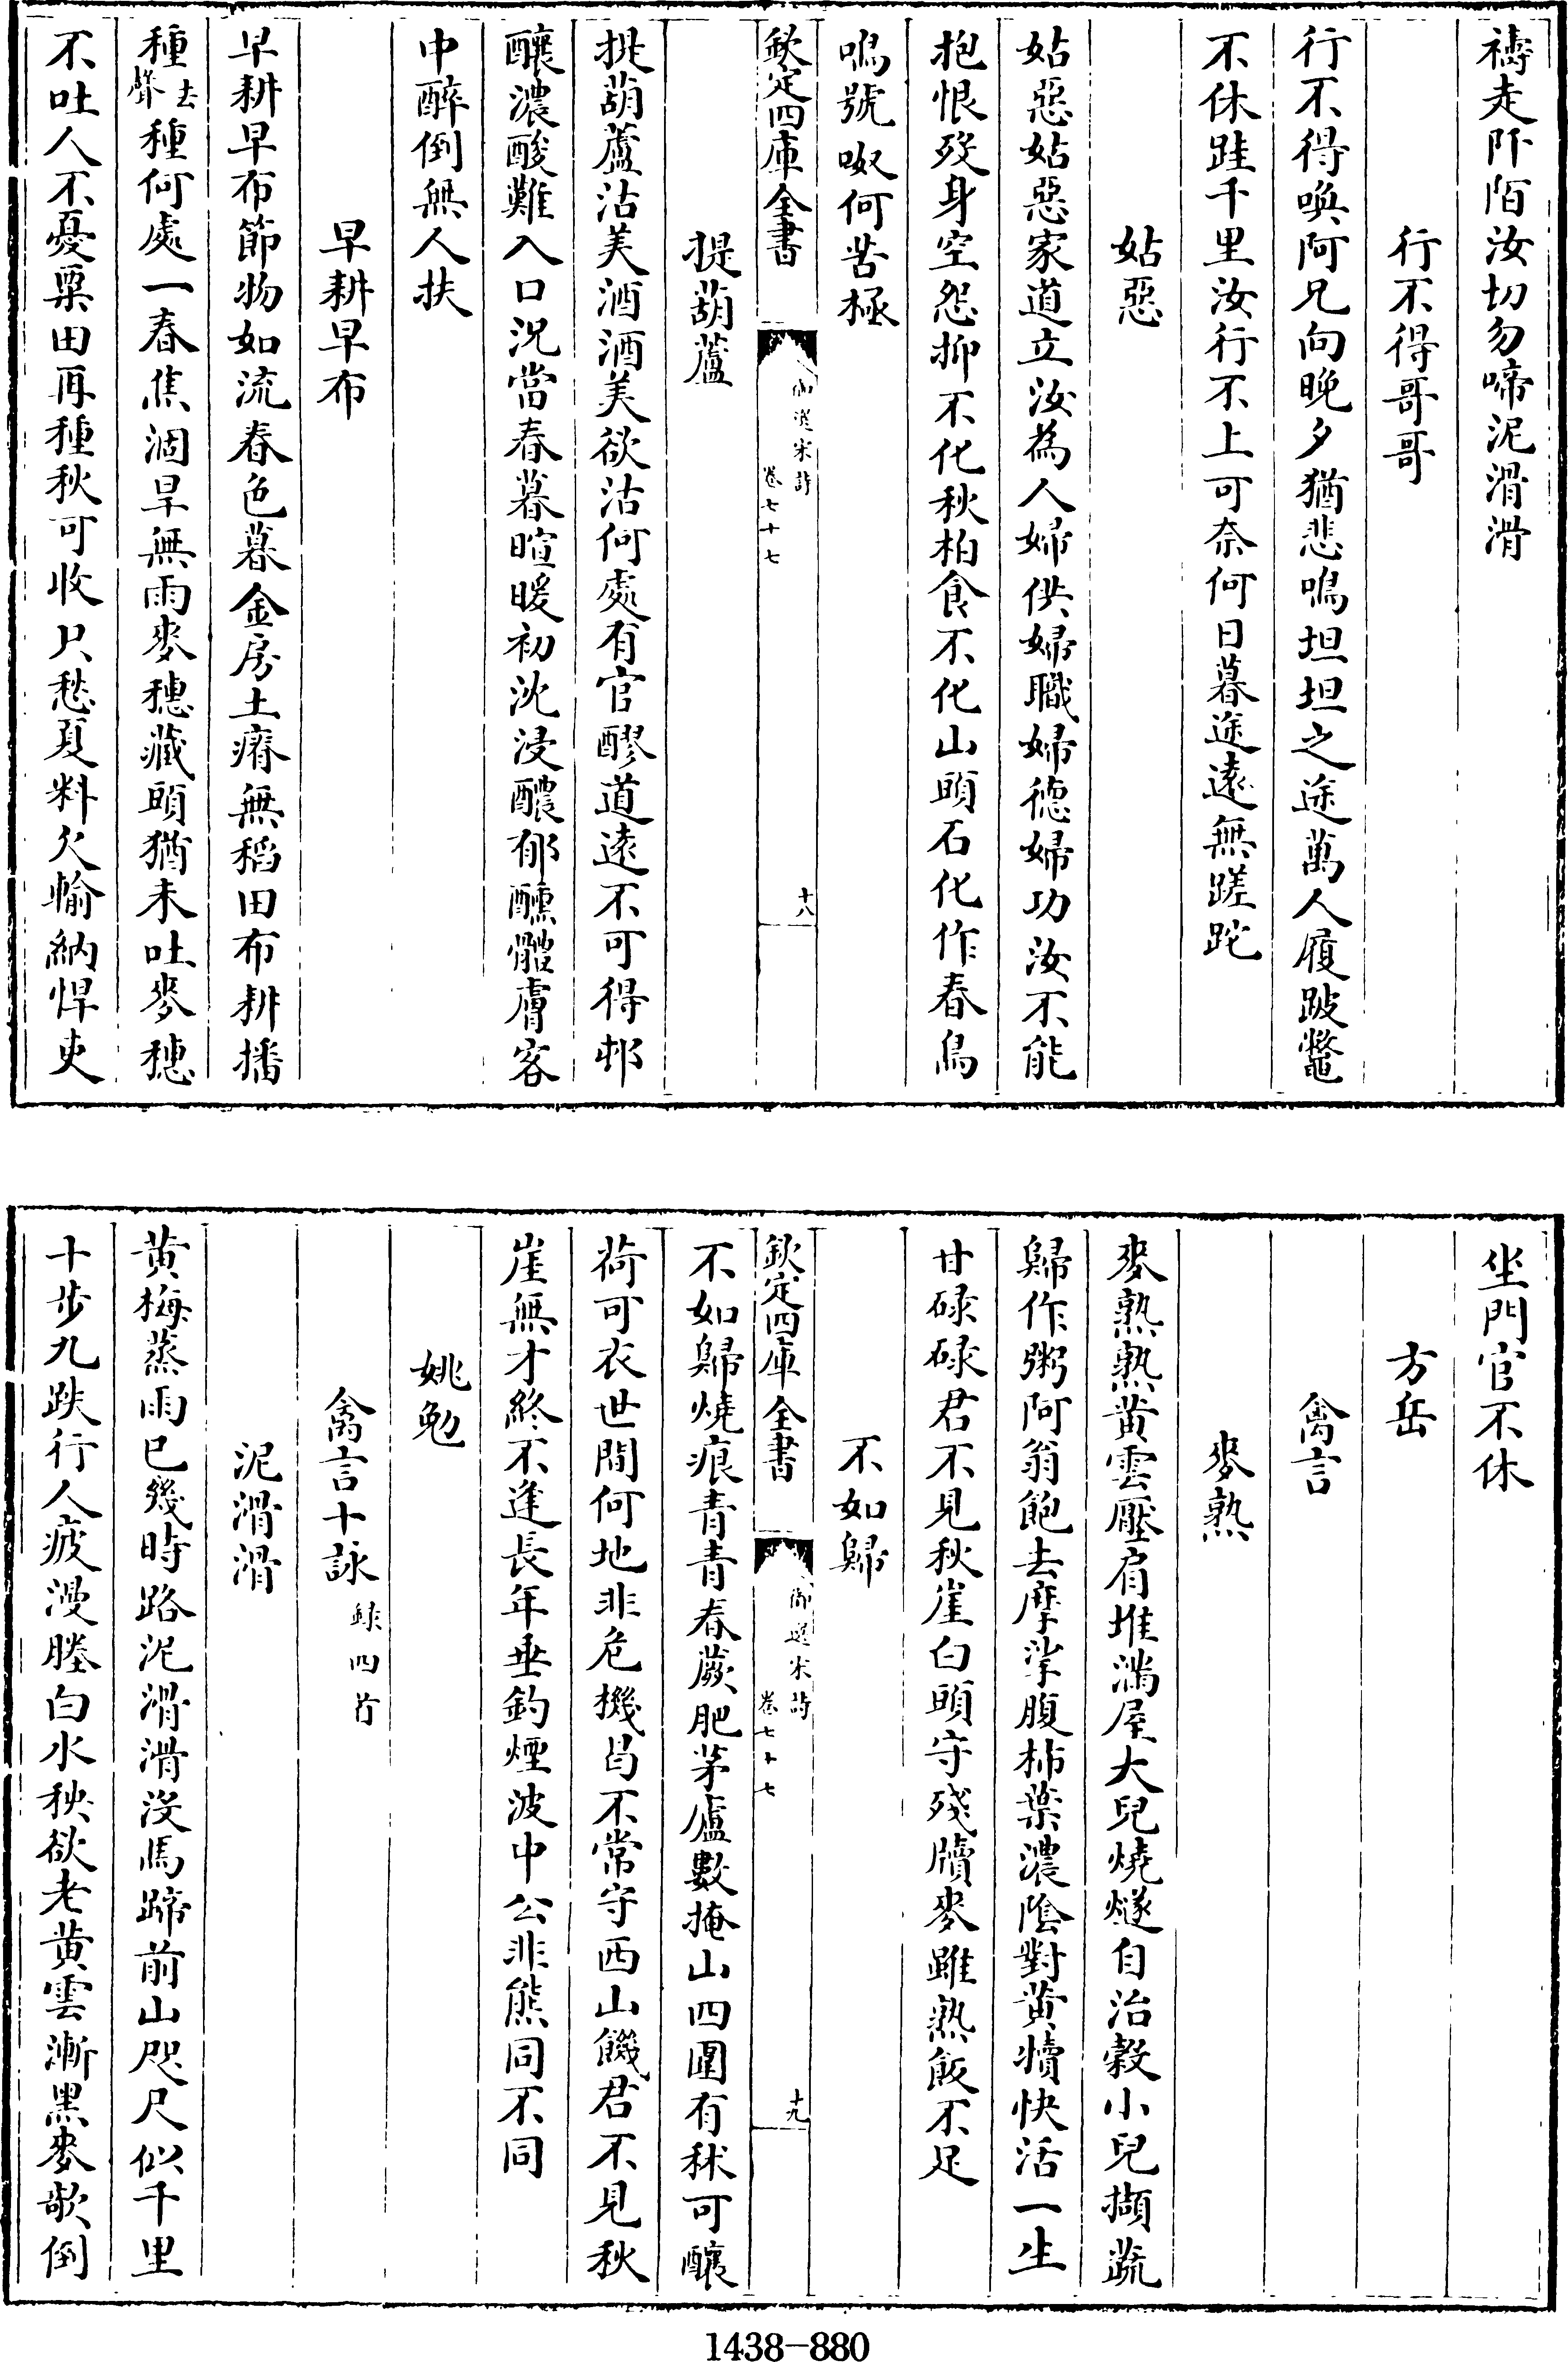 禱走阡陌汝切勿啼泥滑滑
行不得哥哥
行不得喚阿兄向晚夕猶悲鳴坦坦之途萬人履跛鼈
不休跬千里汝行不上可奈何日暮途遠無蹉跎
姑惡
姑惡姑惡家道立汝為人婦供婦職婦德婦功汝不能
抱恨歿身空怨抑不化秋柏食不化山頭石化作春鳥
鳴號呶何苦極
欽定四庫全書
御選宋詩
卷七十七
十八
提葫蘆
提葫蘆沽美酒酒美欲沽何處有官醪道遠不可得邨
釀濃酸難入口況當春暮暄暖初沈浸醲郁醺體膚客
中醉倒無人扶
早耕早布
早耕早布節物如流春色暮金房土瘠無稻田布耕播
種去聲種何處一春焦涸旱無雨麥穗藏頭猶未吐麥穗
不吐人不憂粟田再種秋可收只愁夏料欠輸納悍吏
坐門官不休
方岳
禽言
麥熟
麥熟熟黄雲壓肩堆滿屋大兒燒燧自治穀小兒擷蔬
歸作粥阿翁飽去摩挲腹柿葉濃陰對黄犢快活一生
甘碌碌君不見秋崖白頭守殘牘麥雖熟飯不足
不如歸
欽定四庫全書
御選宋詩
卷七十七
十九
不如歸燒痕青青春蕨肥茅廬數掩山四圍有秫可釀
荷可衣世間何地非危機曷不常守西山饑君不見秋
崖無才終不逢長年垂釣煙波中公非熊同不同
姚勉
禽言十詠録四首
泥滑滑
黄梅蒸雨已幾時路泥滑滑沒馬蹄前山咫尺似千里
十步九跌行人疲漫塍白水秧欲老黄雲漸黑麥欹倒
1438-880